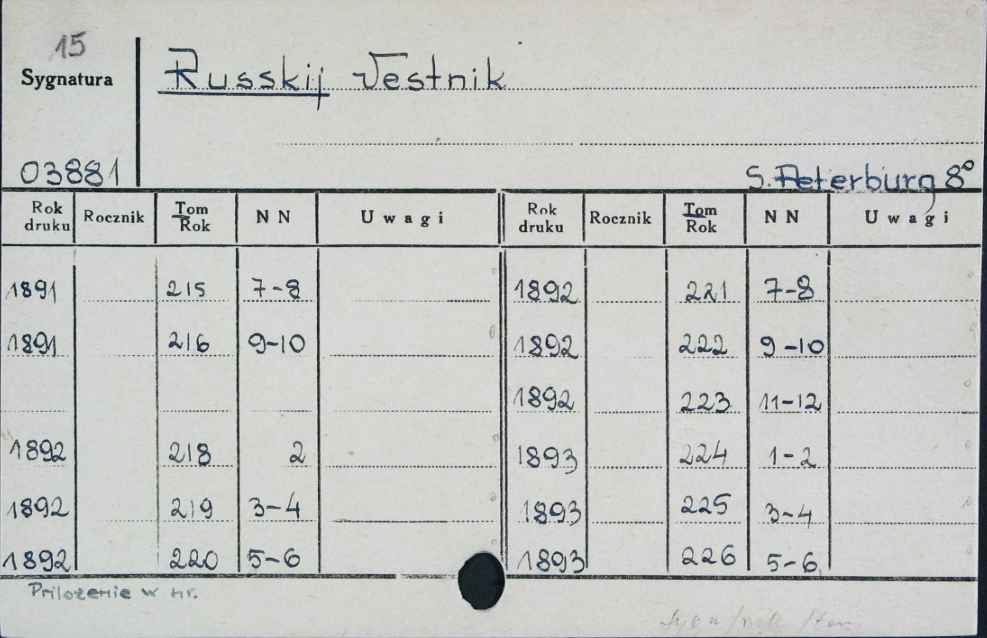 15
Sygnatura Russkij Vestnik
03881 S. Peterburg 8°
Rok druku Rocznik Tom Rok N N Uwagi Rok druku Rocznik Tom Rok N N Uwagi
1891 215 7-8 1892 221 7-8
1891 216 9-10 1892 222 9-10
1892 223 11-12
1892 218 2 1893 224 1-2
1892 219 3-4 1893 225 3-4
1892 220 5-6 1893 226 5-6
Priloženie w nr.